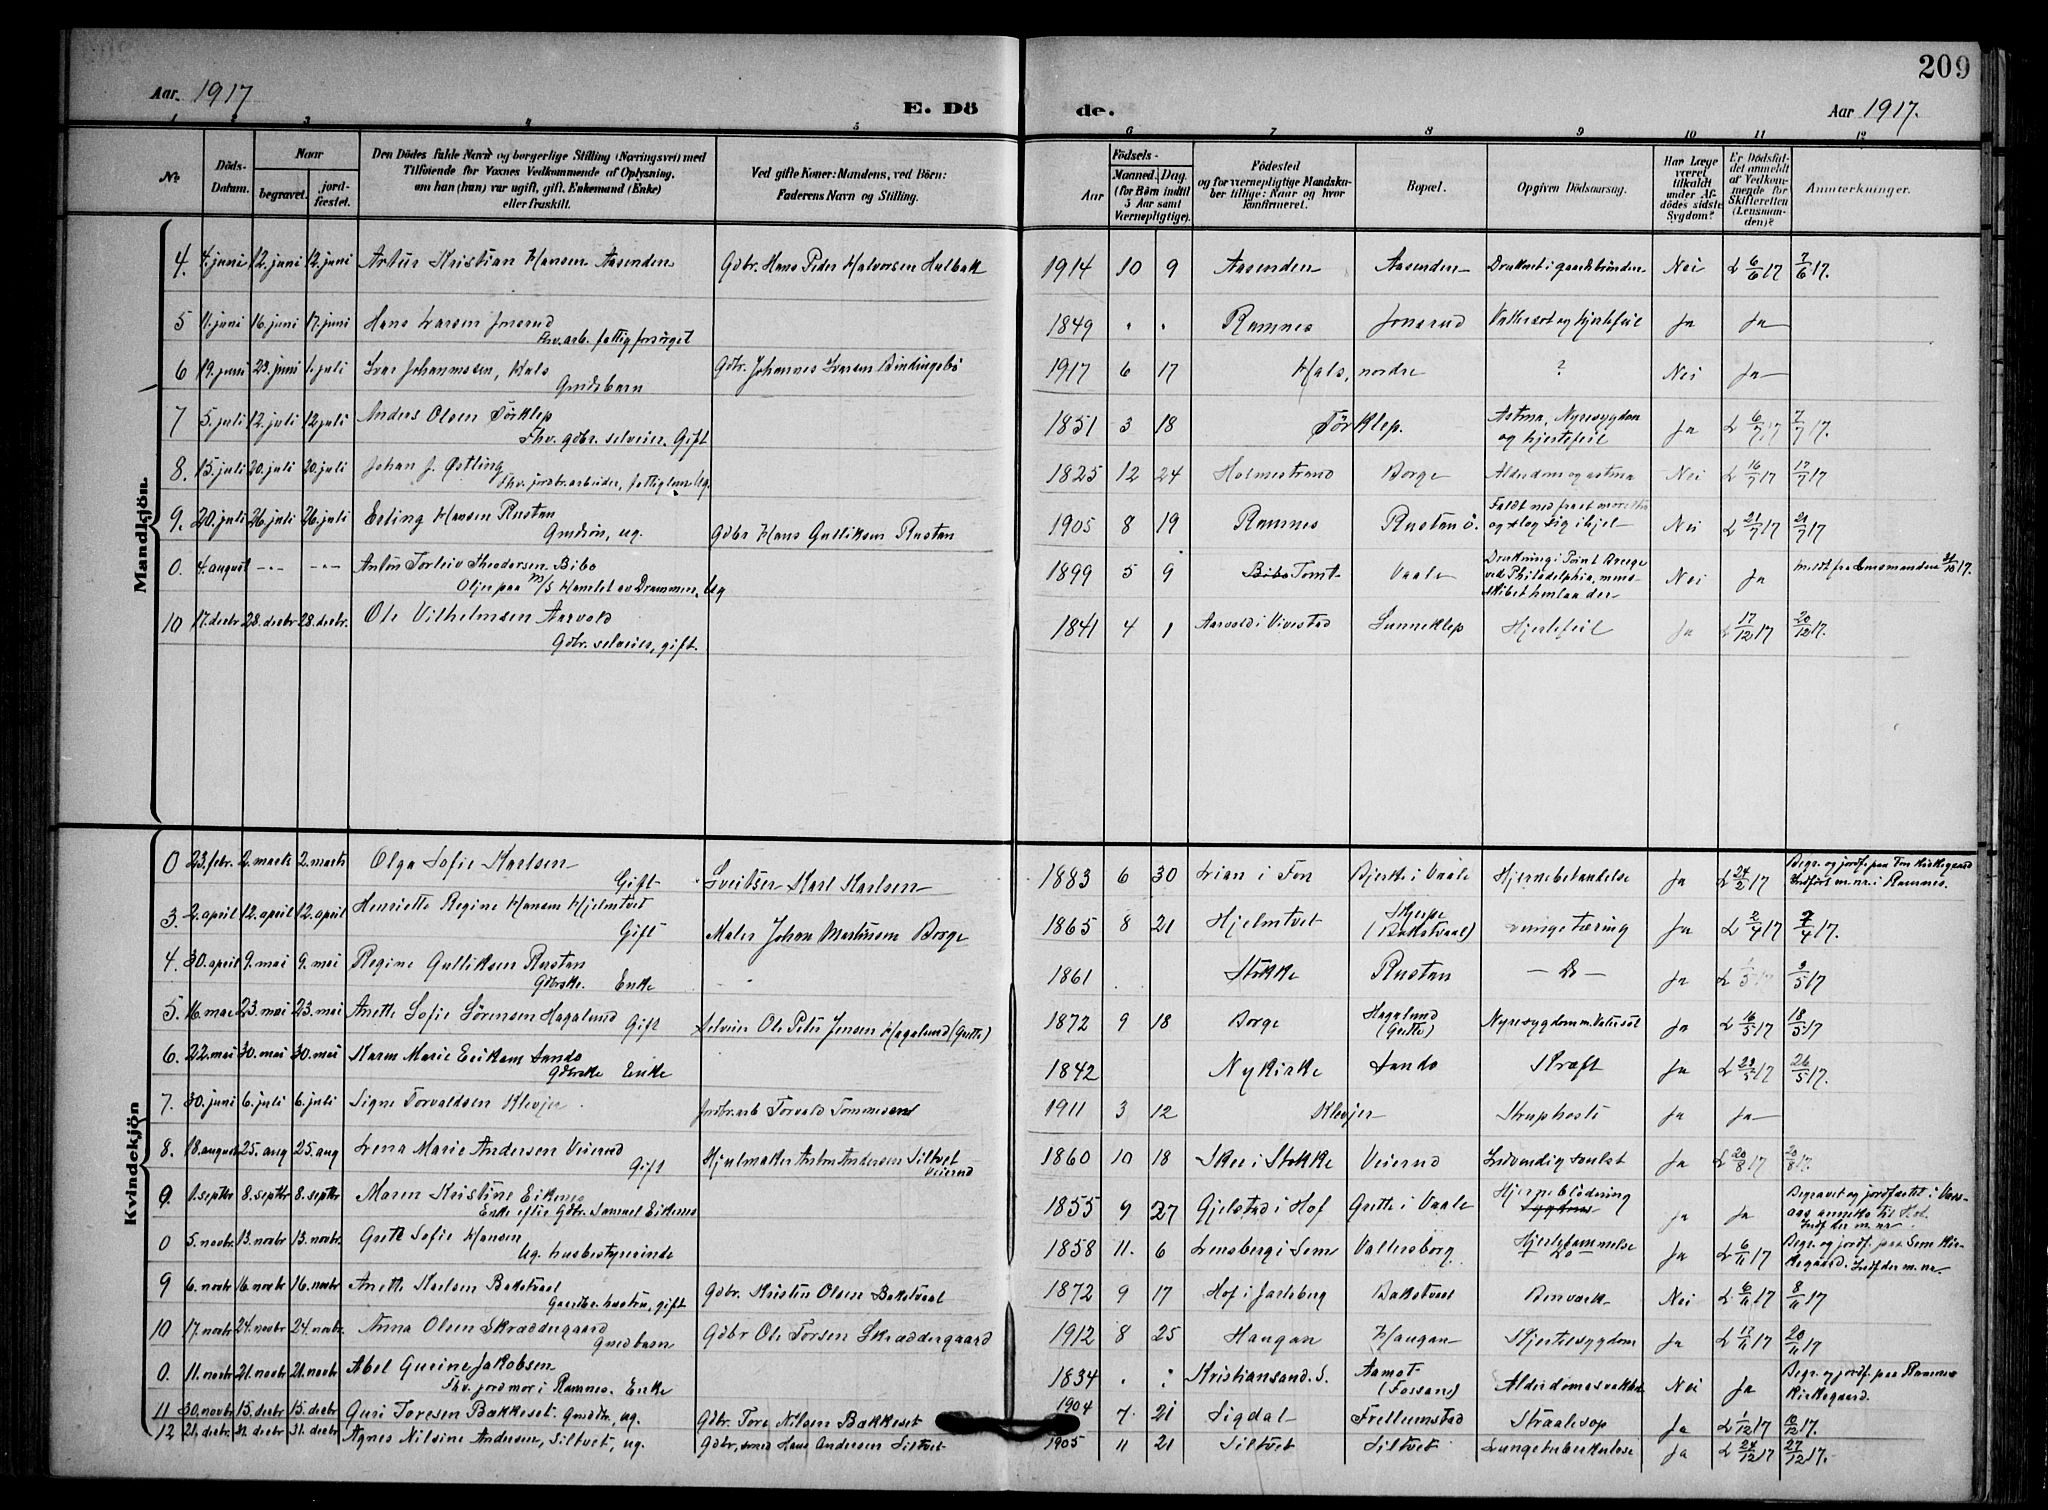 209
Aar. 1917
E. Dö
de.
Aar 1917.
1 2 3 4 5 6 7 8 9 10 11 12
No
Döds-
Datum.
Naar
begravet.
jord-
fæstet.
Den Dödes fulde Navn og borgerlige Stilling (Næringsvei) med
Tilföiende for Voxnes Vedkommende af Oplysning,
om han (hun) var ugift, gift, Enkemand (Enke)
eller fraskilt.
Ved gifte Koner: Mandens, ved Börn:
Faderens Navn og Stilling.
Födsels-
Aar
Maaned. Dag.
(for Börn indtil
5 Aar samt
Værnepligtige).
Födested
og for værnepligtige Mandska-
ber tillige: Naar og hvor
konfirmeret.
Bopæl.
Opgiven Dödsaarsag.
Har Læge
været
tilkaldt
under Af-
dödes sidste
Sygdom?
Er Dödsfal-
det anmeldt
af Vedkom-
mende for
Skifteretten
(Lensman-
den)?
Anmerkninger.
Mandkjön.
4. 4. juni 12. juni 12. juni Artur Kristian Hansen Aasenden Gdbr. Hans Peder Halvorsen Holbak 1914 10 9 Aasenden Aasenden Druknet i gaardsbrønden Nei L 6/6 17 7/6 17.
5 11. juni 16. juni 17. juni Hans Larsen Jonsrud
Fhv. arb. fattigforsörget 1849 " " Ramnes Jonsrud Vattersot og hjertefeil Ja Ja
6 19. juni 23. juni 1. juli Ivar Johannessen, Hals
Gmdsbarn Gdbr. Johannes Ivarsen Bindingsbö 1917 6 17 Hals, nordre ? Nei Ja
7 5. juli 12. juli 12 juli Anders Olsen Törklep
Fhv. gdbr. selveier. Gift 1851 3 18 Törklep. Astma, Nyresygdom
og hjertefeil Ja L 6/7 17 7/7 17.
8. 15. juli 20. juli 20. juli Johan J. Østling
Fhv. jordbr. arbeider, fattiglem Ug. 1825 12 24 Holmestrand Borge Alderdom og astma Nei L 16/7 17 17/7 17
9. 20. juli 26. juli 26. juli Erling Hansen Rustan
Gmdsön, ug. Gdbr Hans Gulliksen Rustan 1905 8 19 Ramnes Rustan ö. Faldt ned fra et moreltræ
og slog sig ihjel Nei L 21/7 17 21/7 17
0. 4. august -"- -"- Anton Torleiv Theodorsen Bibo
Oljer paa M/S Hamlet av Drammen, Ug 1899 5 9 Bibo Tomt Vaale Drukning i Point Breege
ved Philadelphia, mens
skibet henlaa der Nei Ja meldt fra lensmanden 31/10 17.
10 17. decbr 28. decbr 28. decbr. Ole Vilhelmsen Aarvold
Gdbr. selveier, gift. 1841 4 1 Aarvold i Vivestad Sunneklep Hjertefeil Ja L 17/12 17 20/12 17.
Kvindekjön
0 23. febr. 2. marts 2. marts Olga Sofie Karlsen
Gift Sveitser Karl Karlsen 1883 6 30 Lian i Fon Bjerke i Vaale Hjernebetændelse Ja L 24/2 17 Begr. og jordf. paa Fon kirkegaard
Indført m. nr. i Ramnes.
3. 2. april 12. april 12. april Henriette Regine Hansen Hjelmtvet
Gift Maler Johan Martinsen Borge 1865 8 21 Hjelmtvet Skjerpe
(Bakstvaal) Lungetæring Ja L 2/4 17 7/4 17.
4. 30. april 9. mai 9. mai Regine Gulliksen Rustan
Gdbrske. Enke 1861 Stokke Rustan — Do — Ja L 1/5 17 9/5 17
5. 16. mai 23. mai 23. mai Anette Sofie Sörensen Hagalund
Gift Selveier Ole Peter Jensen Hagalund (Grette) 1872 9 18 Borge Hagalund
(Grette) Nyresygdom m. Vatersot Ja L 16/5 17 18/5 17
6. 22. mai 30. mai 30. mai Karen Marie Eriksen Sando
Gdbrske Enke 1842 Nykirke Sando Kræft Ja L 23/5 17 26/5 17.
7. 30. juni 6. juli 6. juli Signe Torvaldsen Klevjer Jordbr.arb Torvald Tommesen 1911 3 12 Klevjer Struphoste Ja Ja
8. 18. august 25. aug 25. aug Lena Marie Andersen Veierud
Gift Hjulmaker Anton Andersen Siltvet
Veierud 1860 10 18 Skee i Stokke Veierud Indvendig svulst Ja L 20/8 17 20/8 17.
0. 1. septbr 8. septbr 8. septbr Maren Kristine Eikenes
Enke efter Gdbr. Samuel Eikenes 1855 9 27 Gjelstad i Hof Grette i Vaale Hjerneblödning Ja Ja Begravet og jordfæstet i Vas-
aas anneks til Hof.
Indf der m. nr.
0 5. novbr. 13. novbr 13. novbr. Grete Sofie Hansen
Ug. husbestyrerinde 1858 11. 6 Lensberg i Sem Vallersborg Hjertelammelse Ja L 6/11 17 Begr. og jordf. paa Sem kir-
kegaard. Indf der m. nr.
9 6. novbr 16. novbr 16. novbr Anette Karlsen Bakstvaal
Gaardbr. hustru, gift Gdbr. Kristen Olsen Bakstvaal 1872 9 17 Hof i Jarlsberg Bakstvaal Benværk Nei L 6/11 17 8/11 17
10 17. novbr 24. novbr 24. novbr. Anna Olsen Skræddergaard
Gmdbarn Gdbr Ole Torsen Skræddergaard 1912 8 25 Haugan Haugan Hjertesygdom Ja L 17/11 17 20/11 17
0. 11. novbr. 21. novbr 21. novbr Abel Gurine Jakobsen
Fhv. jordmor i Ramnes. Enke 1834 " " Kristiansand. S. Aamot
(Fossan) Alderdomssvækkelse Nei Ja Begr. og jordf. paa Ramnes
Kirkegaard.
11 30. novbr 15. decbr 15. decbr Guri Toresen Bækkeset. Gmdtr, ug. Gdbr. Tore Nilsen Bækkeset 1904 7. 21 Sigdal Frellumstad Straalesop Ja L 1/12 17 10/12 17.
12 21. decbr. 31. decbr 31. decbr Agnes Nilsine Andersen, Siltvet, ug. Gdbr, smed Hans Andersen Siltvet 1905 11 21 Siltvet Siltvet Lungetuberkulose Ja L 24/12 17 27/12 17.